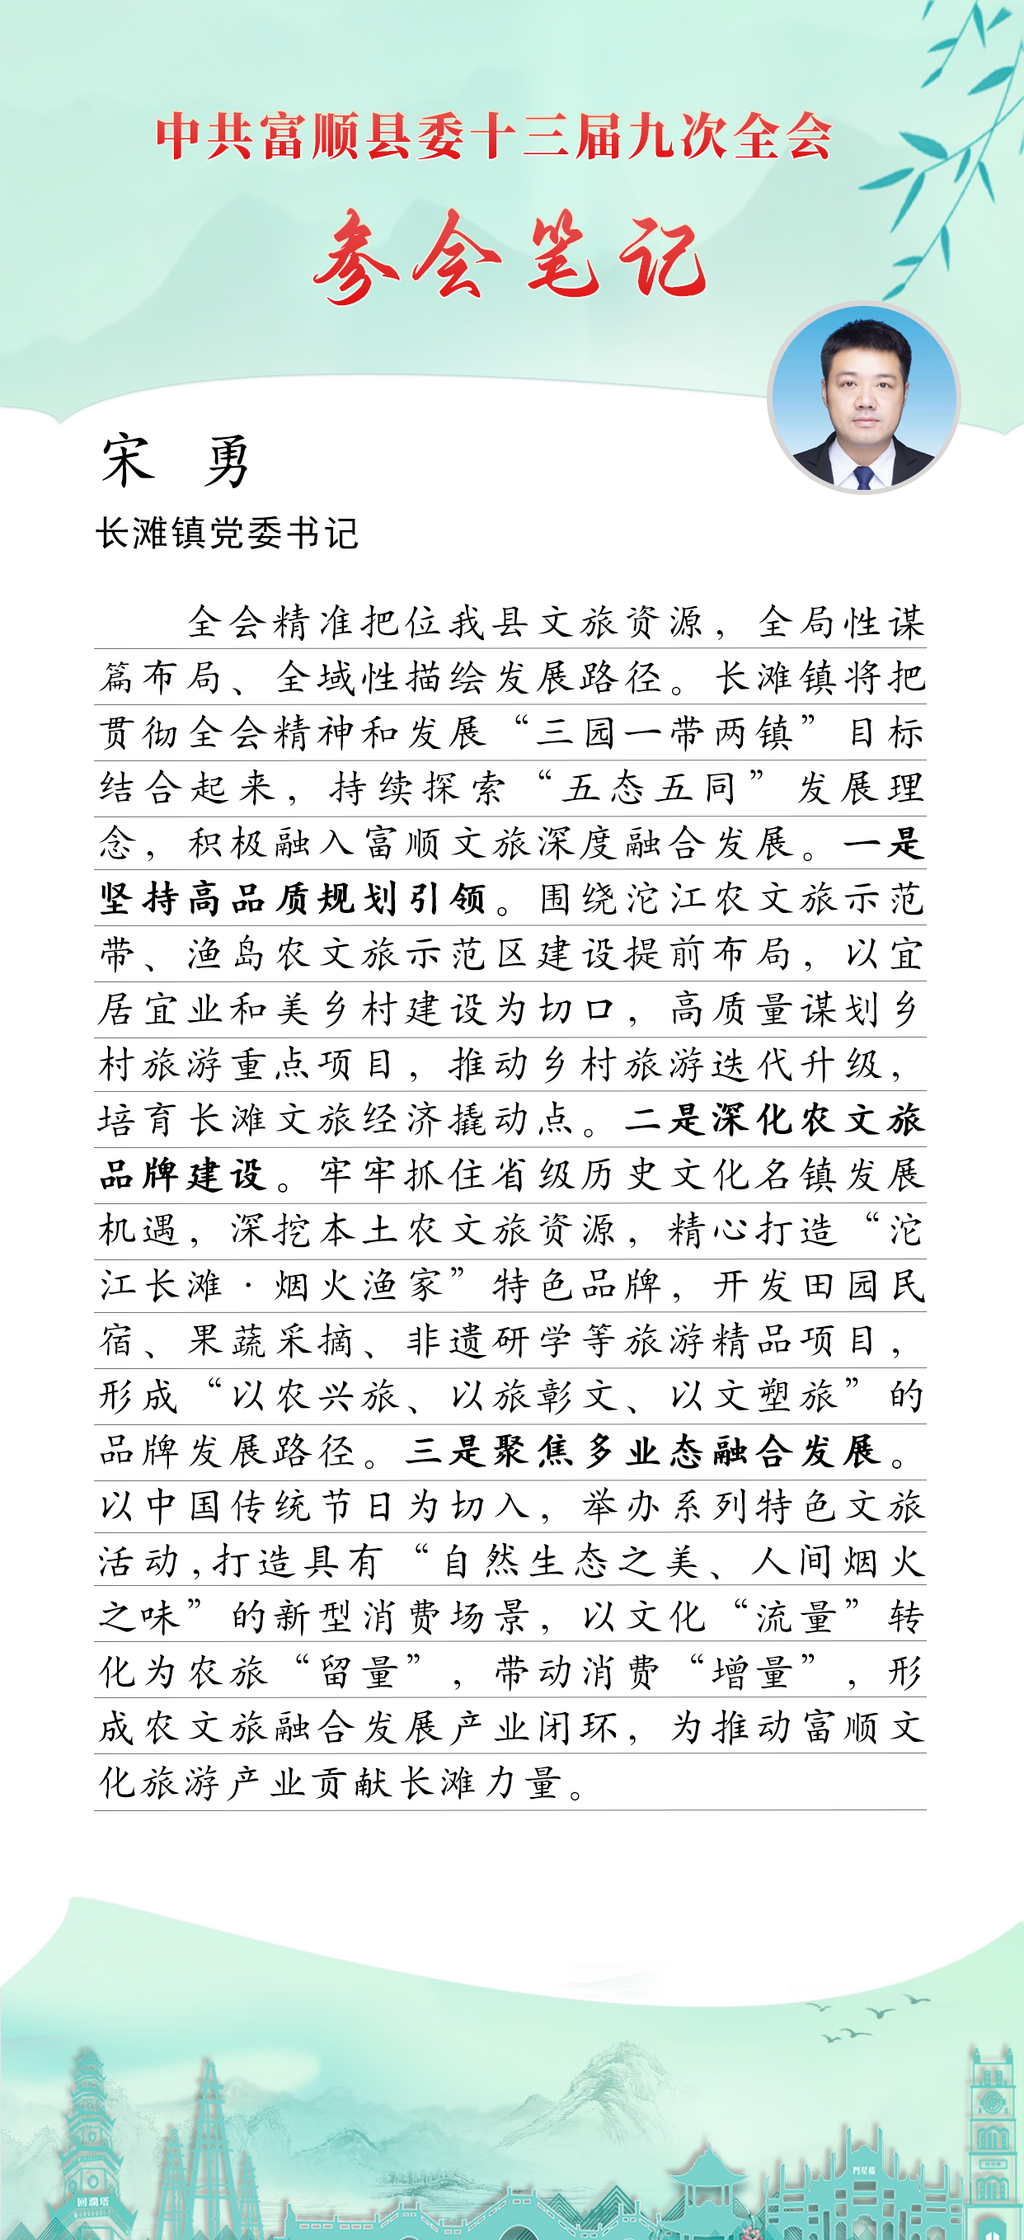 中共富顺县委十三届九次全会
参会笔记
宋 勇
长滩镇党委书记
全会精准把位我县文旅资源，全局性谋
篇布局、全域性描绘发展路径。长滩镇将把
贯彻全会精神和发展“三园一带两镇”目标
结合起来，持续探索“五态五同”发展理
念，积极融入富顺文旅深度融合发展。一是
坚持高品质规划引领。围绕沱江农文旅示范
带、渔岛农文旅示范区建设提前布局，以宜
居宜业和美乡村建设为切口，高质量谋划乡
村旅游重点项目，推动乡村旅游迭代升级，
培育长滩文旅经济撬动点。二是深化农文旅
品牌建设。牢牢抓住省级历史文化名镇发展
机遇，深挖本土农文旅资源，精心打造“沱
江长滩·烟火渔家”特色品牌，开发田园民
宿、果蔬采摘、非遗研学等旅游精品项目，
形成“以农兴旅、以旅彰文、以文塑旅”的
品牌发展路径。三是聚焦多业态融合发展。
以中国传统节日为切入，举办系列特色文旅
活动,打造具有“自然生态之美、人间烟火
之味”的新型消费场景，以文化“流量”转
化为农旅“留量”，带动消费“增量”，形
成农文旅融合发展产业闭环，为推动富顺文
化旅游产业贡献长滩力量。
回瀾塔